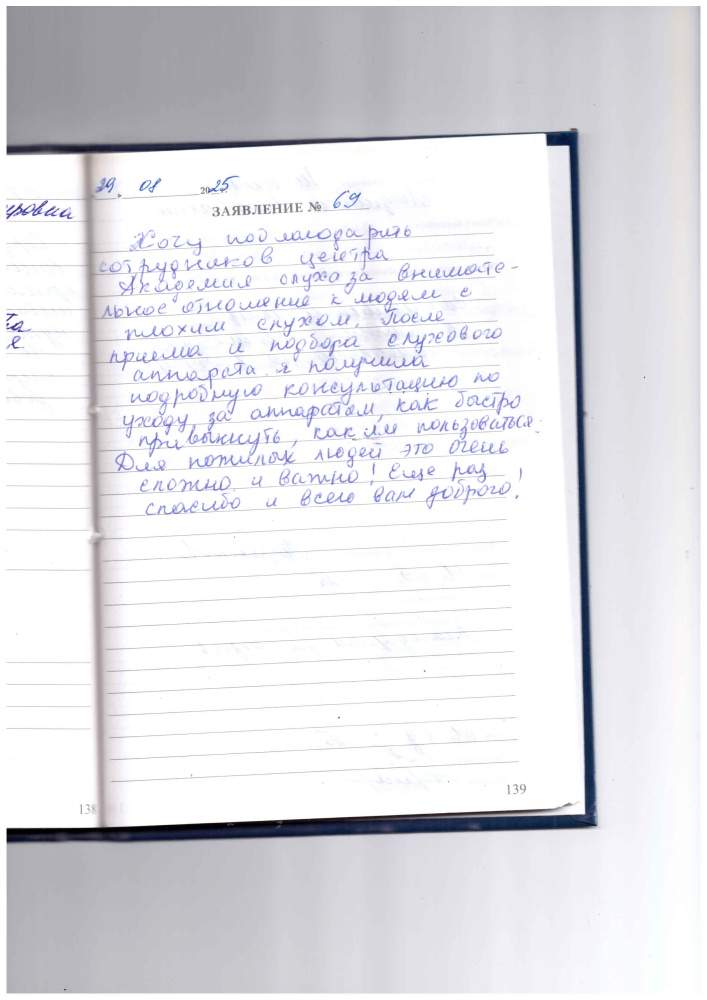 29 08 2025
ЗАЯВЛЕНИЕ № 69
Хочу поблагодарить
сотрудников центра
Академия слуха за внимате-
льное отношение к людям с
плохим слухом. После
приема и подбора слухового
аппарата я получила
подробную консультацию по
уходу за аппаратом, как быстро
привыкнуть, как им пользоваться.
Для пожилых людей это очень
сложно и важно! Еще раз
спасибо и всего вам доброго!
139
138